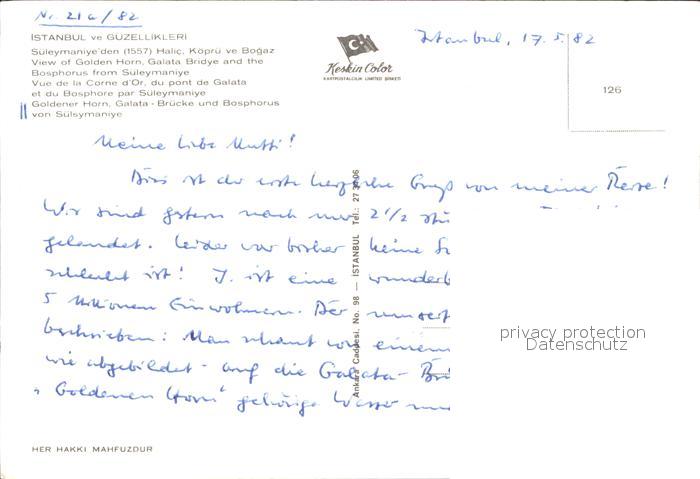 Nr. 21a/82
Istanbul, 17.5.82
İSTANBUL ve GÜZELLİKLERİ
Süleymaniye'den (1557) Haliç, Köprü ve Boğaz
View of Golden Horn, Galata Bridye and the
Bosphorus from Süleymaniye
Vue de la Corne d'Or, du pont de Galata
et du Bosphore par Süleymaniye
Goldener Horn, Galata - Brücke und Bosphorus
von Sülsymaniye
Keskin Color
KARTPOSTALCILIK LIMITED ŞIRKETI
126
Meine liebe Mutti!
Dies ist der erste herzliche Gruß von meiner Reise!
Wir sind gestern nach nur 2 1/2
gelandet. Leider war bisher keine
schlecht ist! I. ist eine wunderb
5 Millionen Einwohnern. Der
beschrieben: Man schaut von einem
wie abgebildet - auf die Galata-
"Goldenen Horn" gehörige Wasser
Ankara Caddesi. No. 98 — İSTANBUL Tel.: 27 3606
privacy protection
Datenschutz
HER HAKKI MAHFUZDUR